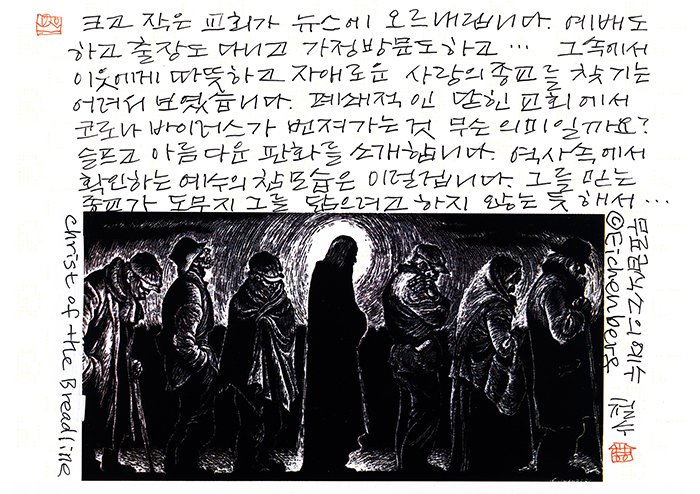 크고 작은 교회가 뉴스에 오르내립니다. 예배도
하고 출장도 다니고 가정방문도 하고 … 그속에서
이웃에게 따뜻하고 자애로운 사랑의 종교를 찾기는
어려워 보였습니다. 폐쇄적인 닫힌 교회에서
코로나 바이러스가 번져가는 것 무슨 의미일까요?
슬프고 아름다운 판화를 소개합니다. 역사속에서
확인하는 예수의 참모습은 이럴겁니다. 그를 믿는
종교가 도무지 그를 닮으려고 하지 않는 듯 해서 …
Christ of the Breadline
무료급식소의 예수
©Eichenberg